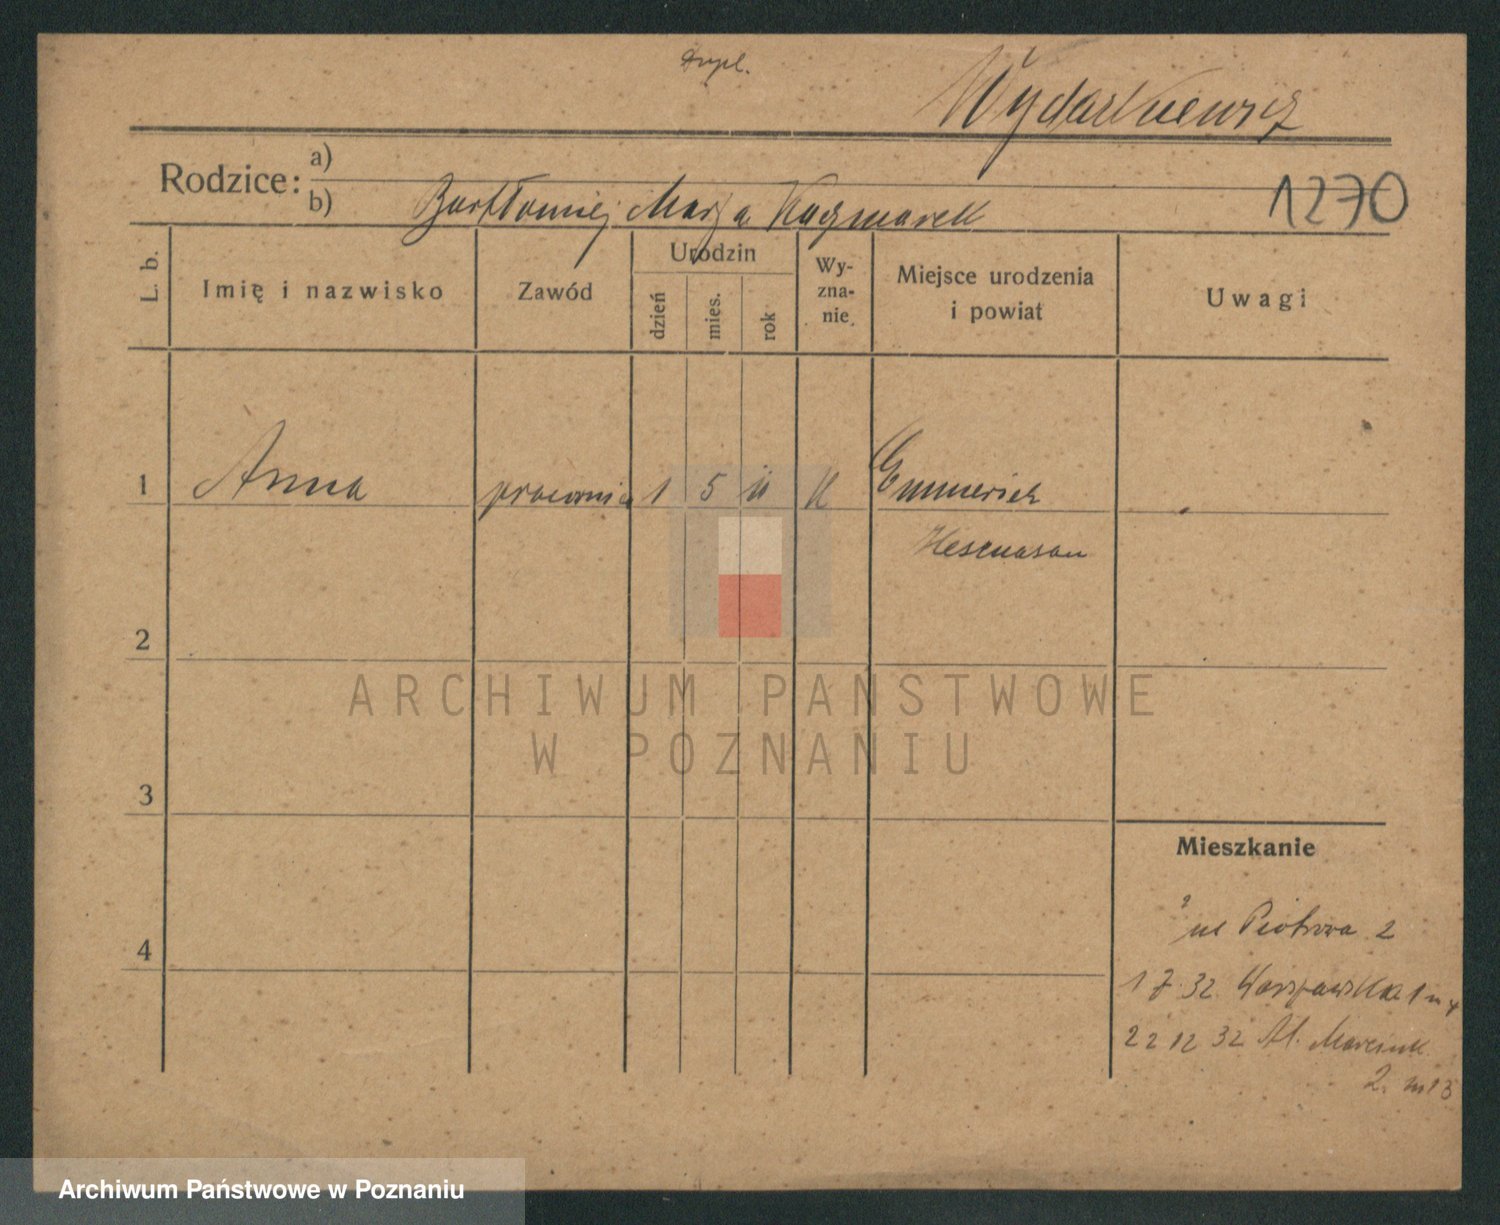 Dupl.
Wydarkiewicz
Rodzice: a)
b) Bartłomiej Marja Kaczmarek
1270
L. b.
Imię i nazwisko
Zawód
Urodzin
dzień
mies.
rok
Wy-
zna-
nie
Miejsce urodzenia
i powiat
Uwagi
1 Anna 1 5 11 K Emmerich
2
3
4
Mieszkanie
Piotrowa 2
1 7 32 Warszawska 1 m 4
22 12 32 Al. Marcink
2. m 13
ARCHIWUM PAŃSTWOWE
W POZNANIU
Archiwum Państwowe w Poznaniu